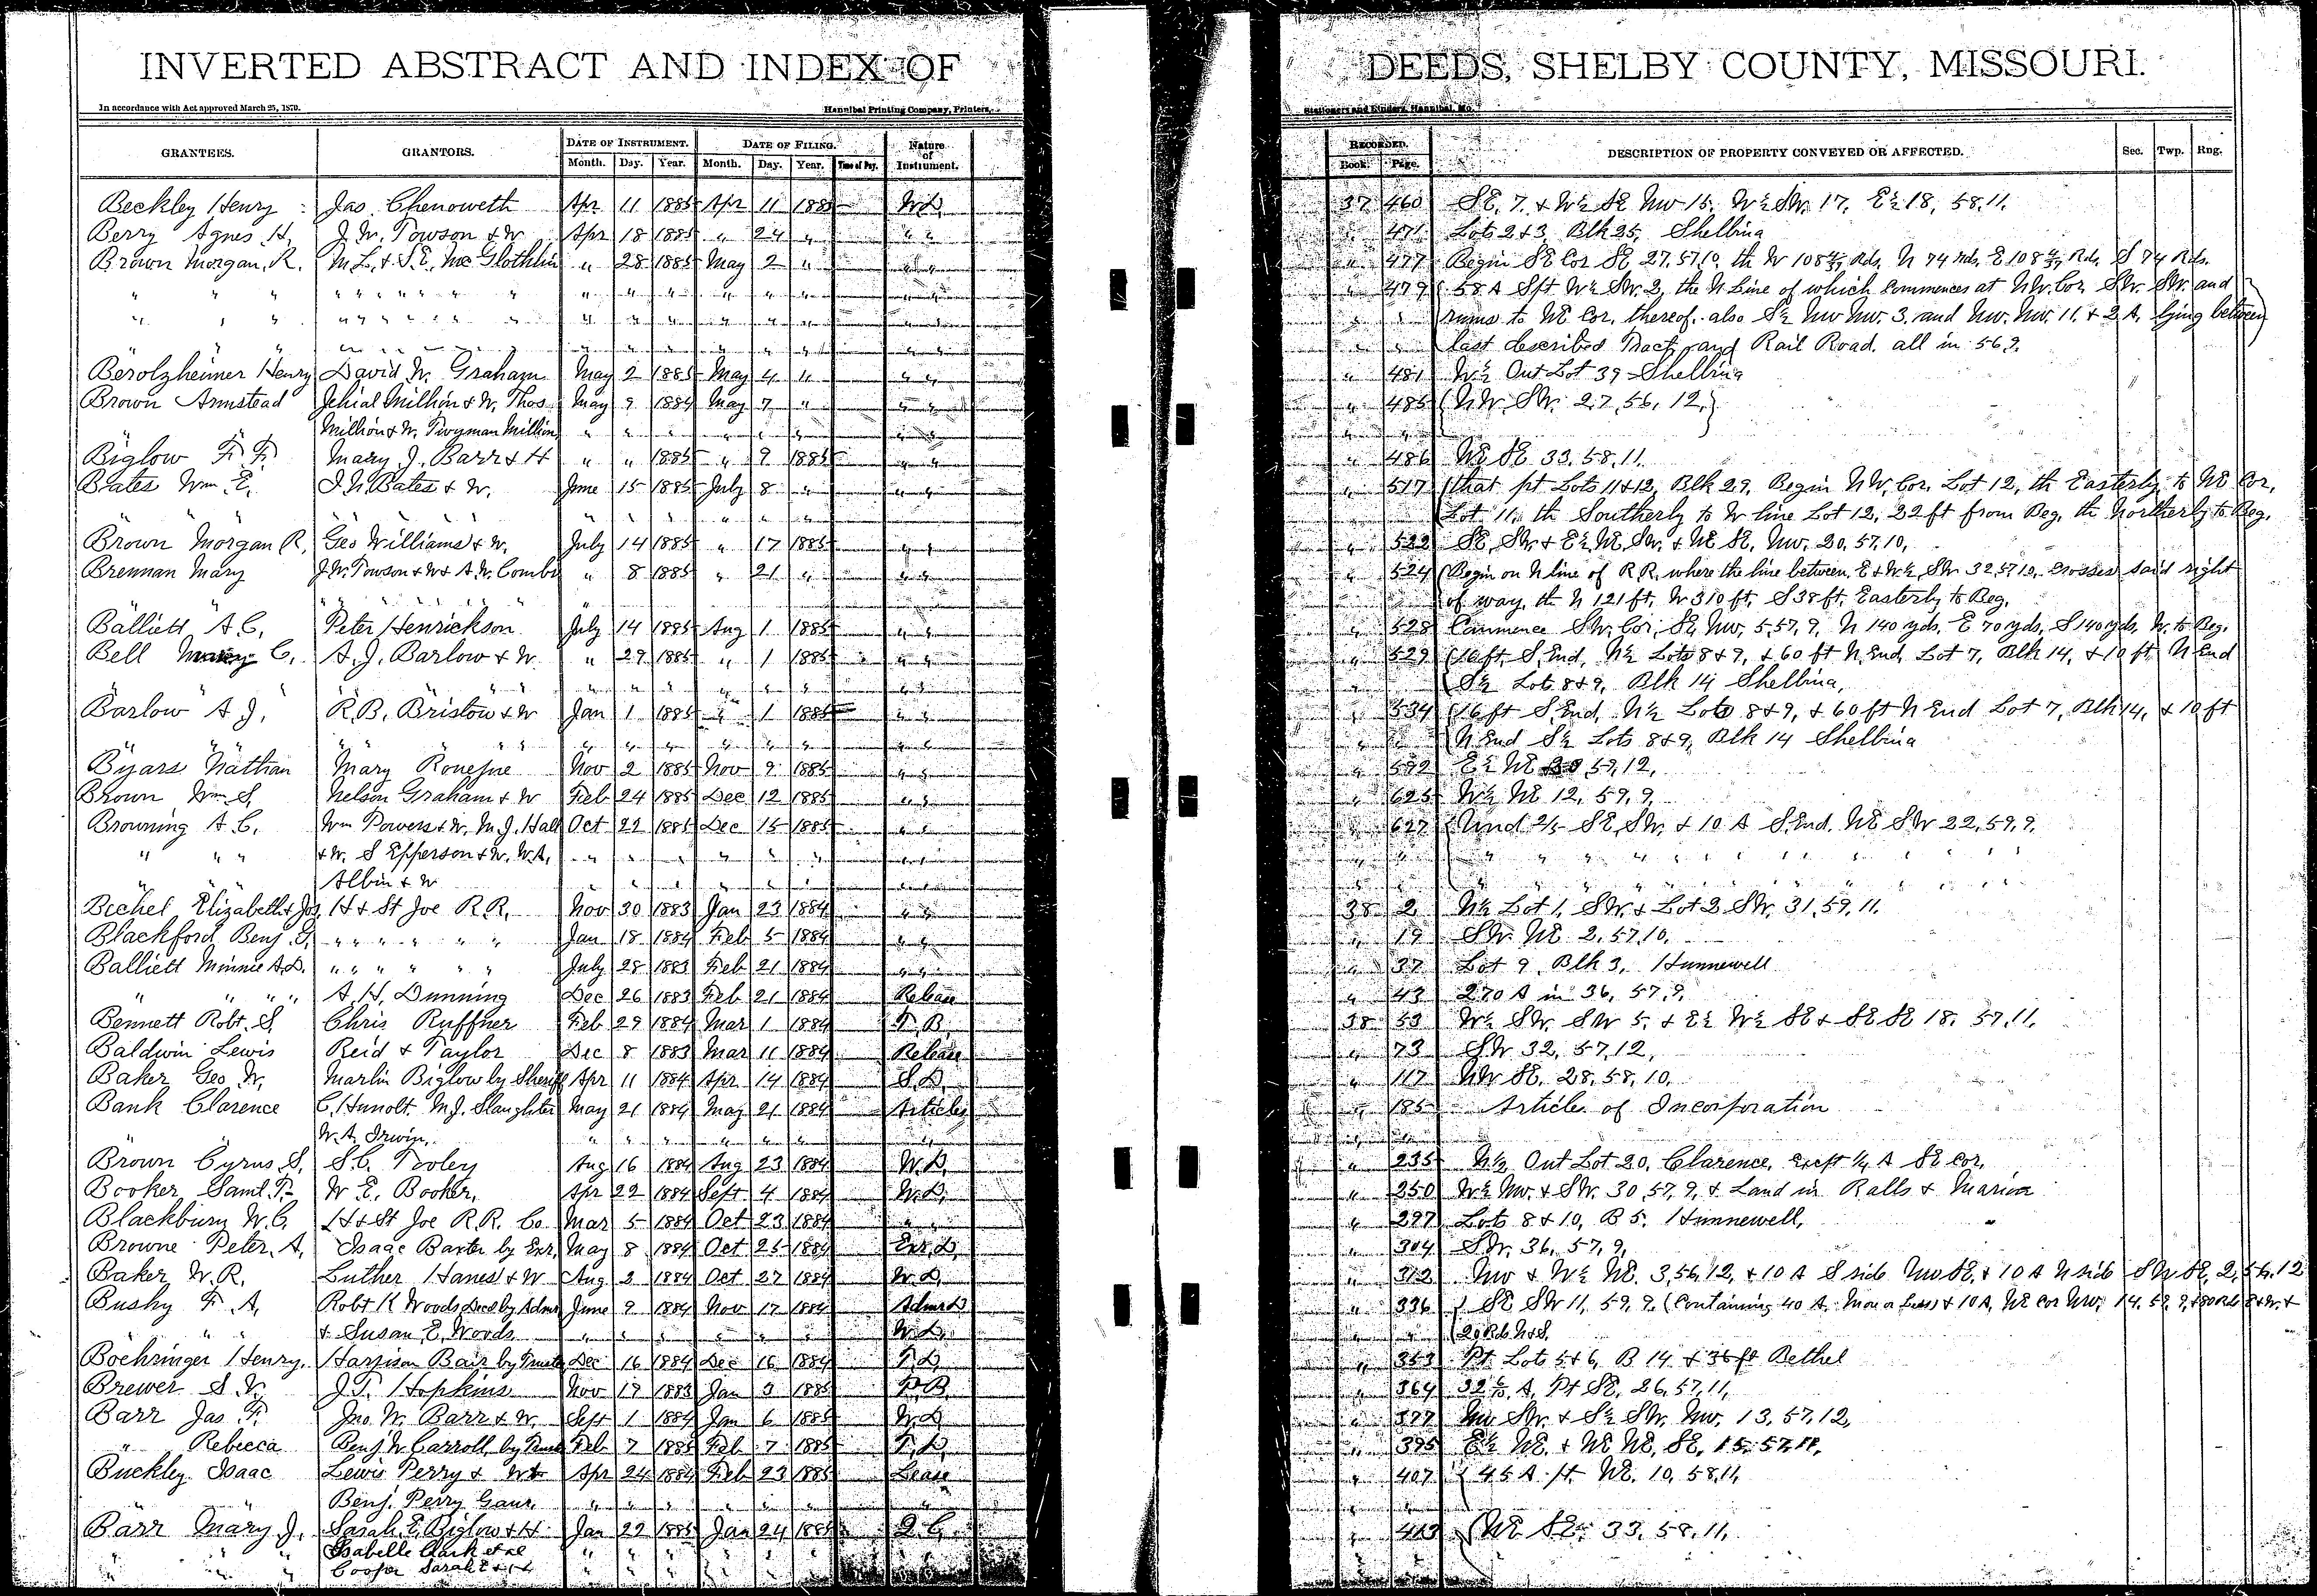 INVERTED ABSTRACT AND INDEX OF DEEDS, SHELBY COUNTY, MISSOURI.
In accordance with Act approved March 25, 1870. Hannibal Printing Company, Printers, Stationers and Binders, Hannibal, Mo.
GRANTEES. GRANTORS. DATE OF INSTRUMENT. DATE OF FILING. Nature of Instrument. RECORDED. DESCRIPTION OF PROPERTY CONVEYED OR AFFECTED. Sec. Twp. Rng.
Month. Day. Year. Month. Day. Year. Time of Day. Book. Page.
Beckley Henry Jas. Chenoweth Apr 11 1885 Apr 11 1885 W.D. 37 460 SE. 7. + W½ SE NW 15. W½ SW. 17. E½ 18, 58.11.
Berry Agnes H. J. W. Towson + W Apr 18 1885 " 24 " " " " 471 Lots 2+3 Blk 25, Shelbina
Brown Morgan. R. M.L. + S.E. McGlothlin " 28 1885 May 2 " " " " 477 Begin SE Cor SE 27.57.10. th W 108 Rds. N 74 rds. E 108 Rds. S 74 Rds.
" " " " " " " " 479 58 A Spt W½ SW. 2, the N Line of which commences at NW. Cor. SW. SW. and
" " " " " " " " runs to NE Cor. thereof. also S½ NW NW. 3. and NW. NW. 11. + 2 A. lying between
" " " " last described Tract and Rail Road. all in 56.9.
Berolzheimer Henry David W. Graham May 2 1885 May 4 " " " " 481 W½ Out Lot 39 Shelbina
Brown Armstead Jehial Million + W. Thos May 9 1884 May 7 " " " " 485 NW. SW. 27, 56, 12,
Million + W. Twyman Million " " " " " "
Biglow F. F. Mary J. Barr + H " " 1885 " 9 1885 " " " 486 NE SE 33.58.11.
Bates Wm. E. J. N. Bates + W. June 15 1885 July 8 " " " " 517 that pt Lots 11+12, Blk 29, Begin NW. Cor. Lot 12, th Easterly to NE Cor.
" " " " " " Lot 11, th Southerly to W line Lot 12, 22 ft from Beg. th Northerly to Beg.
Brown Morgan R. Geo Williams + W. July 14 1885 " 17 1885 " " " 522 SE, SW + E½ NE, SW. + NE SE. NW. 20, 57, 10,
Brennan Mary J. W. Towson + W + A. W. Combs " 8 1885 " 21 " " " " 524 Begin on N line of R.R. where the line between, E + W½, SW 32.57.10. Crosses said right
" " " " " " of way, th N 121 ft. W 310 ft. S 38 ft. Easterly to Beg.
Balliett A. C. Peter Henrickson July 14 1885 Aug 1 1885 " " " 528 Commence SW. Cor. SE, NW, 5.57.9, N 140 yds. E 70 yds. S 140 yds. W. to Beg.
Bell C. A. J. Barlow + W. " 29 1885 " 1 1885 " " " 529 16 ft. S. End, N½ Lots 8+9, + 60 ft N. End Lot 7, Blk 14, + 10 ft N End
" " " " " " S½ Lots 8+9, Blk 14 Shelbina,
Barlow A J. R. B. Bristow + W Jan 1 1885 " 1 1885 " " " 534 16 ft S. End. N½ Lots 8+9, + 60 ft N End Lot 7, Blk 14, + 10 ft
" " " " " " N End S½ Lots 8+9, Blk 14 Shelbina
Byars Nathan Mary Nov 2 1885 Nov 9 1885 " " " 592 E½ NE 59, 12,
Brown Wm. S. Nelson Graham + W Feb 24 1885 Dec 12 1885 " " " 625 W½ NE 12, 59, 9
Browning A. C. Wm Powers + W. M. J. Hall Oct 22 1885 Dec 15 1885 " " " 627 Und 2/5 SE, SW. + 10 A S. End. NE SW 22, 59, 9.
" " " + W. S Epperson + W. W. A. " " " " " "
" " Albin + W " " " " " "
Bechel Elizabeth + Jos H + St Joe R.R. Nov 30 1883 Jan 23 1884 " " 38 2 N½ Lot 1, SW. + Lot 2 SW. 31, 59, 11.
Blackford Benj. " " " " " " Jan 18 1884 Feb 5 1884 " " " 19 SW. NE 2, 57, 10,
Balliett Minnie A.D. " " " " " " July 28 1883 Feb 21 1884 " " " 37 Lot 9 Blk 3, Hunnewell
" " " " A. H. Dunning Dec 26 1883 Feb 21 1884 Release " 43 270 A in 36, 57, 9,
Bennett Robt. S. Chris Ruffner Feb 29 1884 Mar 1 1884 38 53 W½ SW. SW 5. + E½ W½ SE + SE SE 18. 57, 11.
Baldwin Lewis Reid + Taylor Dec 8 1883 Mar 11 1884 Release " 73 SW 32, 57, 12,
Baker Geo W. Marlin Biglow by Sheriff Apr 11 1884 Apr 14 1884 S.D. " 117 NW SE. 28, 58, 10,
Bank Clarence C. Hunolt. M. J. Slaughter May 21 1884 May 21 1884 Articles " 185 Articles of Incorporation
W. A. Irwin, " " " " " "
Brown Cyrus S. S. C. Tooley Aug 16 1884 Aug 23 1884 W.D. " 235 N½ Out Lot 20, Clarence, Except ¼ A SE Cor.
Booker Saml. T. W E. Booker, Apr 22 1884 Sept 4 1884 W.D. " 250 W½ NW. + SW. 30, 57, 9, + Land in Ralls + Marion
Blackburn W. C. H + St Joe R.R. Co Mar 5 1884 Oct 23 1884 " " 297 Lots 8 + 10, B 5, Hunnewell,
Browne Peter. A, Isaac Baxter by Exr. May 8 1884 Oct 25 1884 Exr. D. " 304 SW. 36, 57, 9,
Baker W. R. Luther Hanes + W Aug 2 1884 Oct 27 1884 W.D. " 312 NW + W½ NE. 3, 56, 12, + 10 A S side NW SE. + 10 A N side SW SE, 2, 56, 12
Busby F. A, Robt K Woods Decd by Admr June 9 1884 Nov 17 1884 Admr D " 336 SE SW 11, 59, 9. (Containing 40 A. more or less) + 10 A, NE Cor NW,
" " " + Susan E. Woods " " " " " W.D. " " 20 Rds. N+S.
Boehringer Henry. Harrison Bair by Trustee Dec 16 1884 Dec 16 1884 T.D. " 353 Pt Lots 5+6, B 14 + 36 ft Bethel
Brewer S. J. T. Hopkins Nov 17 1883 Jan 3 1885 " 364 A, Pt SE. 26, 57, 11,
Barr Jas. F. Jno. W. Barr + W. Sept 1 1884 Jan 6 1885 W.D " 377 NW SW. + S½ SW. NW. 13, 57, 12,
" Rebecca Benj. W Carroll, by Trustee Feb 7 1885 Feb 7 1885 T.D " 395 E½ NE. + NE NE, SE, 15, 57, 11,
Buckley Isaac Lewis Perry + Apr 24 1884 Feb 23 1885 Lease " 407 45 A pt NE. 10, 58, 11,
" " Benj. Perry Gaur. " " " " " "
Barr Mary J. Sarah E. Biglow + H Jan 22 1885 Jan 24 1885 Q.C. " 413 NE SE. 33, 58, 11,
" " " Isabelle Clark et al " " " " " "
" " " Cooper Sarah E + H " " " " " "